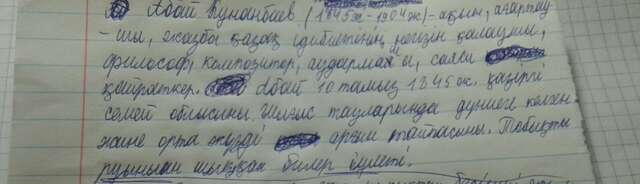 Абай Құнанбаев (1845ж-1904ж)-ақын, ағартау
-шы, жазба қазақ әдибиетінің негизін қалаушы,
философ, композитор, аудармашы, саяси
қайраткер. Абай 10 тамыз 1845ж. қазіргі
семей облысины. Шыңғыс тауларында дүниеге келген
және орта жүзді арғын тайпасыны. Тобықты
руынын шыққан билер әулеті.